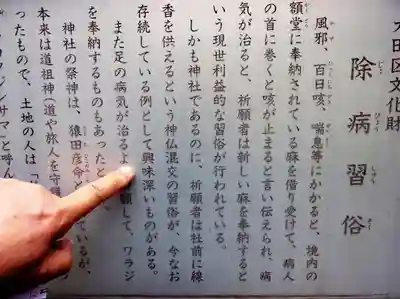 大田区文化財
除病習俗
風邪、百日咳、喘息等にかかると、境内の
額堂に奉納されている麻を借り受けて、病人
の首に巻くと咳が止まると言い伝えられ、病
気が治ると、祈願者は新しい麻を奉納すると
いう現世利益的な習俗が行われている。
しかも神社であるのに、祈願者は社前に線
香を供えるという神仏混交の習俗が、今なお
存続している例として興味深いものがある。
また足の病気が治るよ 願して、ワラジ
を奉納するものもあったと
神社の祭神は、猿田彦命と ているが、
本来は道祖神(道や旅人を守護
ったもので、土地の人は「
ンサマ」と呼ん